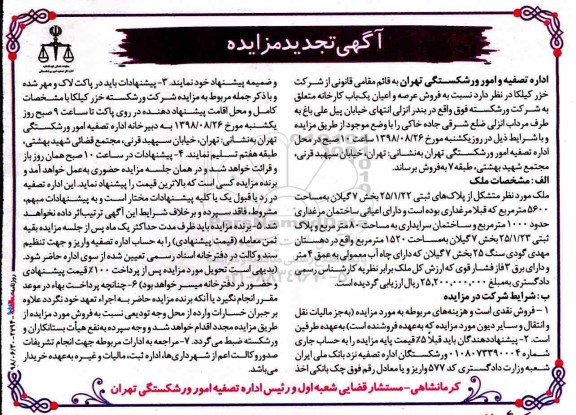 آگهی تجدید مزایده
اداره تصفیه و امور ورشکستگی تهران به قائم مقامی قانونی از شرکت
خزر کیلکا در نظر دارد نسبت به فروش عرصه و اعیان یک باب کارخانه متعلق
به شرکت ورشکسته فوق واقع در بندر انزلی انتهای خیابان پیل علی باغ به
طرف مرداب انزلی ضلع شرقی جاده خاکی را با وضع موجود از طریق مزایده
و با شرایط ذیل در روز یکشنبه مورخ ۱۳۹۸/۰۸/۲۶ ساعت ۱۰ صبح در محل
اداره تصفیه امور ورشکستگی تهران به نشانی: تهران، خیابان سپهبد قرنی،
مجتمع شهید بهشتی، طبقه ۷ به فروش برساند.
الف: مشخصات ملک
ملک مورد نظر متشکل از پلاک‌های ثبتی ۲۵/۱/۲۲ بخش ۷ گیلان به مساحت
۵۶۰۰ مترمربع که قبلا مرغداری بوده است و دارای اعیانی ساختمان مرغداری
حدود ۱۰۰۰ مترمربع و ساختمان سرایداری به مساحت ۸۰ مترمربع و پلاک
ثبتی ۲۵/۱/۲۳ بخش ۷ گیلان به مساحت ۱۵۲۰ مترمربع واقع در دهستان
مهدی گودی سنگ ۲۵ بخش ۷ گیلان که دارای چاه آب معمولی به عمق ۴ متر
و دارای برق ۳ فاز فشار قوی که ارزش کل ملک برابر نظریه کارشناس رسمی
دادگستری به مبلغ ۲۵,۲۰۰,۰۰۰,۰۰۰ ریال ارزیابی گردیده است.
ب: شرایط شرکت در مزایده
۱- فروش نقدی است و هزینه‌های مربوطه به مورد مزایده (به جز مالیات نقل
و انتقال و سایر دیون مورد مزایده که به عهده فروشنده است) به عهده طرفین
است. ۲- پیشنهاددهندگان باید قبلاً ۵٪ قیمت پایه مزایده را به حساب جاری
شماره ۰۱۰۸۰۷۳۳۹۰۰۴ ورشکستگان اداره تصفیه نزد بانک ملی ایران
شعبه وزارت دادگستری کد ۵۷۷ واریز و یا معادل رقم فوق چک بانکی اخذ
و ضمیمه پیشنهاد خود نمایند. ۳- پیشنهادات باید در پاکت لاک و مهر شده
و با ذکر جمله مربوط به مزایده شرکت ورشکسته خزر کیلکا با مشخصات
کامل و محل اقامت پیشنهاد دهنده در روی پاکت تا ساعت ۹ صبح روز
یکشنبه مورخ ۱۳۹۸/۰۸/۲۶ به دبیرخانه اداره تصفیه امور ورشکستگی
تهران به نشانی: تهران، خیابان سپهبد قرنی، مجتمع قضائی شهید بهشتی،
طبقه هفتم تسلیم نمایند. ۴- پیشنهادات در ساعت ۱۰ صبح همان روز باز
و قرائت خواهد شد و در همان جلسه مزایده حضوری به عمل خواهد آمد و
برنده مزایده کسی است که بالاترین قیمت را پیشنهاد نماید. این اداره تصفیه
در رد یا قبول یک یا کلیه پیشنهادات مختار است و به پیشنهادات مبهم،
مشروط، فاقد سپرده و بر خلاف شرایط این آگهی ترتیب اثر داده نخواهد
شد ۵- برنده مزایده باید ظرف مدت حداکثر یک ماه پس از جلسه مزایده بقیه
ثمن معامله (قیمت پیشنهادی) را به حساب اداره تصفیه واریز و جهت تنظیم
سند وکالت در دفترخانه اسناد رسمی تعیین شده از سوی اداره حاضر شود.
(بدیهی است تحویل مورد مزایده پس از پرداخت ۱۰۰٪ قیمت پیشنهادی
و حضور در دفترخانه میسر خواهد بود) ۶- چنانچه پرداخت بهاء در موعد
مقرر انجام نگیرد یا آنکه برنده مزایده حاضر به اجراء تعهد خود نگردد علاوه
بر جبران خسارات وارده از محل وجه تودیعی نسبت به فروش مورد مزایده از
طریق مزایده مجدد اقدام خواهد شد و وجه سپرده به نفع هیأت بستانکاران و
ورشکسته ضبط می گردد. ۷- مراجعه به ادارات مربوطه جهت انجام تشریفات
صدور وکالت اعم از شهرداری‌ها، اداره ثبت، مالیات و غیره به عهده خریدار
می‌باشد.
کرمانشاهی- مستشار قضایی شعبه اول و رئیس اداره تصفیه امور ورشکستگی تهران